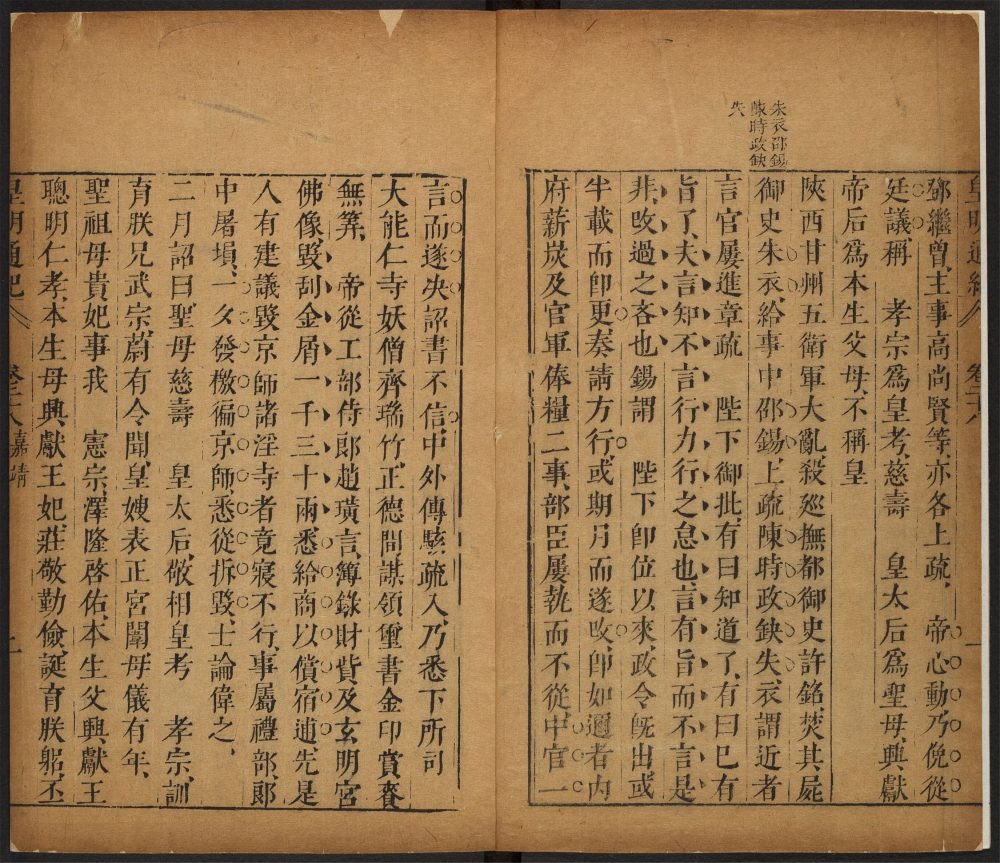 朱衣邵錫
陳時政缺
失
皇明通紀 卷二八 一
鄧繼曾主事高尚賢等亦各上疏 帝心動乃俛從
廷議稱 孝宗爲皇考慈壽 皇太后爲聖母興獻
帝后爲本生父母不稱皇
陝西甘州五衛軍大亂殺巡撫都御史許銘焚其屍
御史朱衣給事中邵錫上疏陳時政缺失衣謂近者
言官屢進章疏 陛下御批有曰知道了有曰已有
旨了夫言知不言行力行之怠也言有旨而不言是
非攺過之吝也錫謂 陛下卽位以來政令旣出或
半載而卽更奏請方行或期月而遂攺卽如邇者內
府薪炭及官軍俸糧二事部臣屢執而不從中官一
言而遂决詔書不信中外傳駭疏入乃悉下所司
大能仁寺妖僧齊瑞竹正德間謀領璽書金印賞賚
無筭 帝從工部侍郎趙璜言簿錄財貲及玄明宮
佛像毀刮金屑一千三十兩悉給商以償宿逋先是
人有建議毀京師諸淫寺者竟寢不行事屬禮部郞
中屠塤一夕發檄徧京師悉從拆毀士論偉之
二月詔曰聖母慈壽 皇太后敬相皇考 孝宗訓
育朕兄武宗蔚有令聞皇嫂表正宮闈母儀有年
聖祖母貴妃事我 憲宗澤隆啓佑本生父興獻王
聰明仁孝本生母興獻王妃莊敬勤儉誕育朕躬丕
皇明通紀 卷二八 嘉靖 二